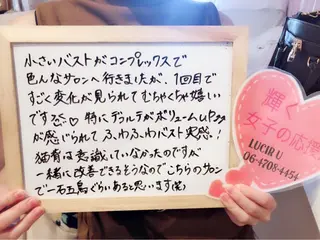 小さいバストがコンプレックスで
色んなサロンへ行きましたが、1回目で
すごく変化が見られてむちゃくちゃ嬉しい
ですデス♡ 特にデコルテがボリュームUPが
が感じられて ふわふわバスト実感!
猫背は意識していなかったのですが
一緒に改善できるそうなのでこちらのサロン
で一石五鳥ぐらいあると思います(笑)
輝く
女子の応援
LUCIR U
06-4708-4454